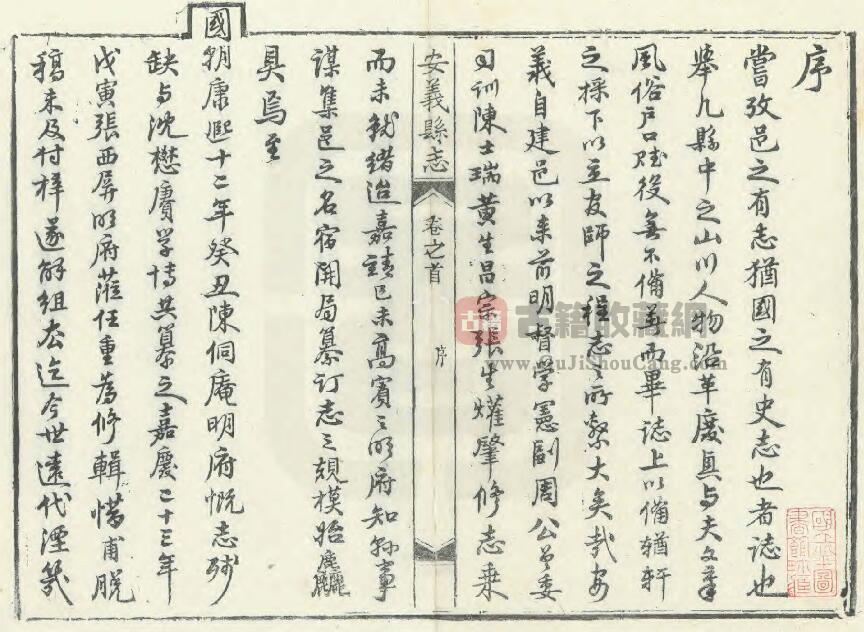 序
嘗攷邑之有志猶國之有史志也者誌也
舉凡縣中之山川人物沿革廢興与夫文章
風俗戶口賦役無不備善而畢誌上以備輶軒
之採下以立友師之程志之所繫大矣哉安
義自建邑以来前明督學憲副周公曾委
司訓陳士瑞黃生昌宗張生爟肇修志乗
安義縣志
卷之首
序
而未就緒迨嘉靖己未高賓之明府知縣事
謀集邑之名宿開局纂订志之规模始麤
具焉至
國朝康熙十二年癸丑陳侗庵明府慨志殘
缺与沈懋賡学博共纂之嘉慶二十三年
戊寅張西屏明府蒞任重為修輯惜甫脫
稿未及付梓遂解組去迄今世遠代湮幾
古籍收藏網
www.GuJiShouCang.com